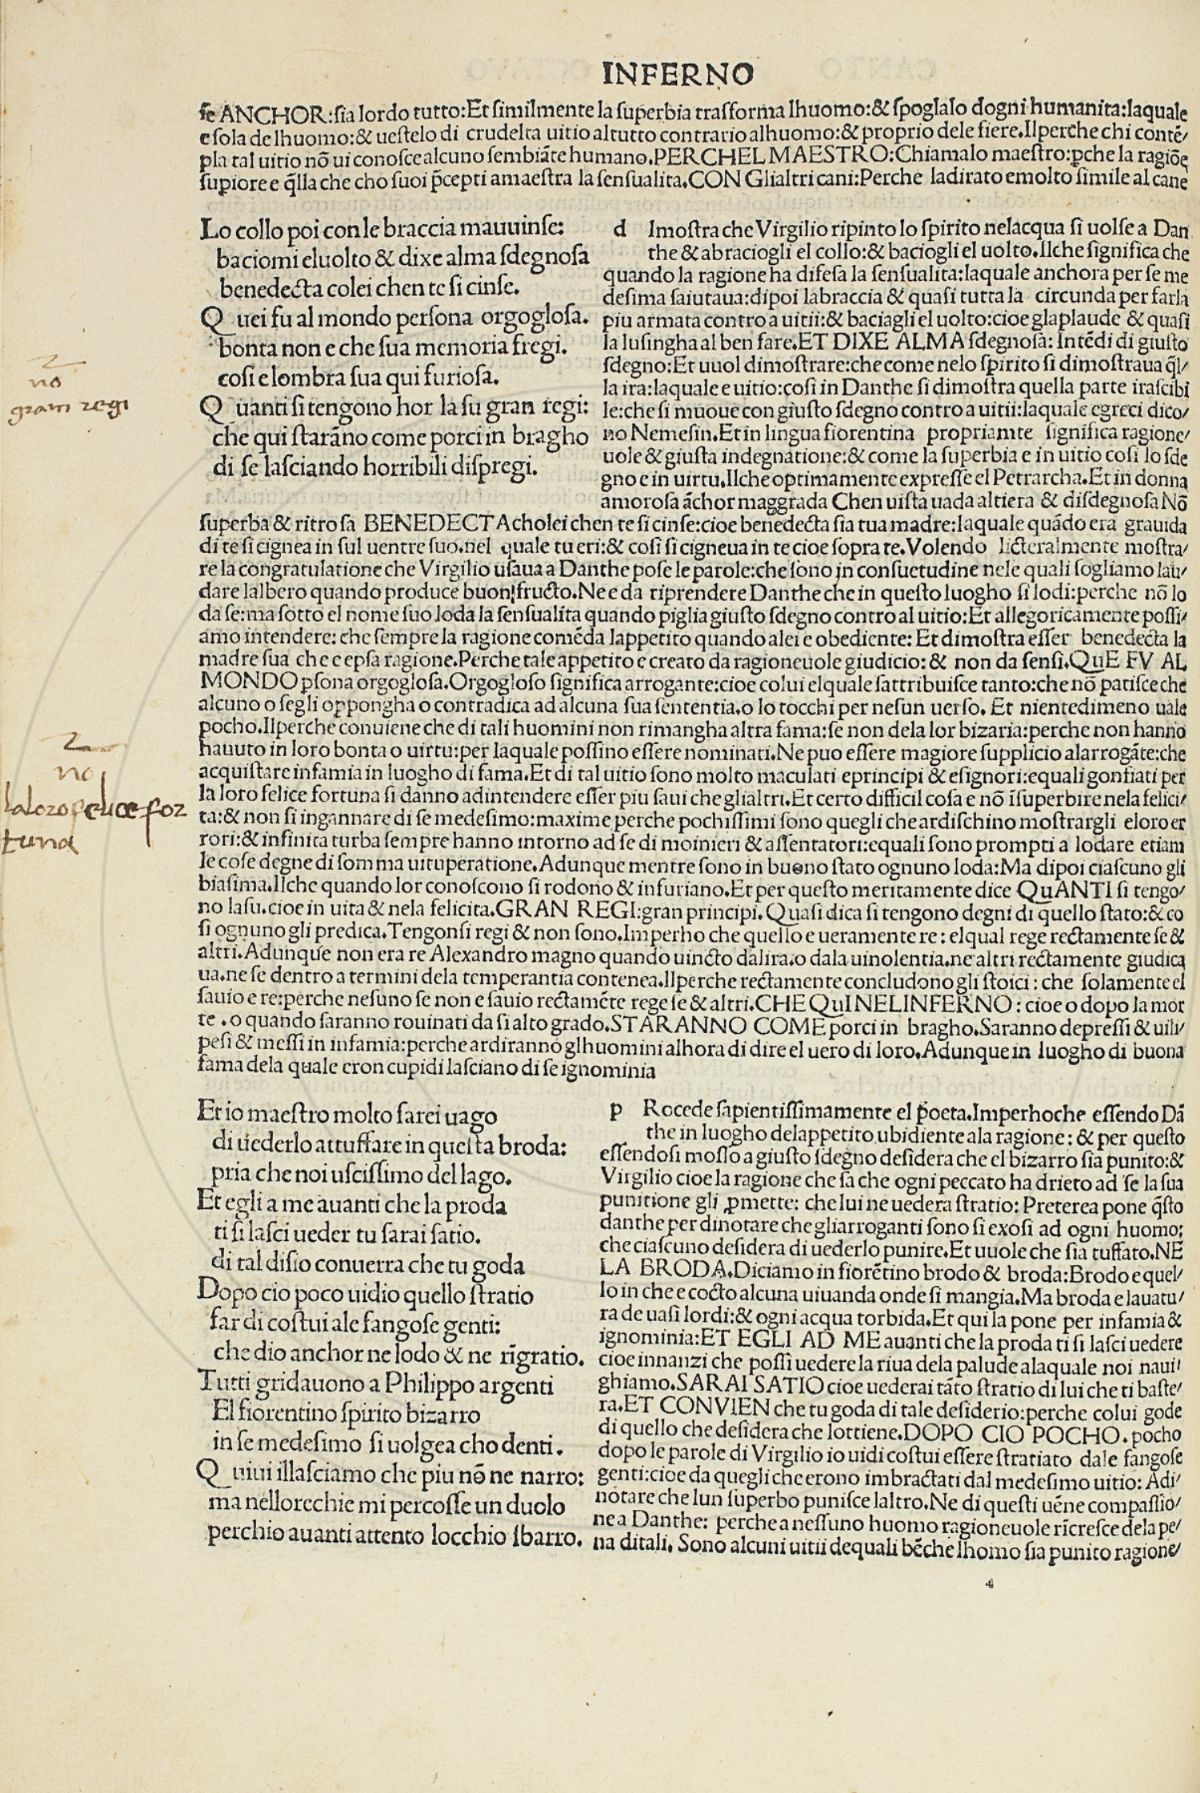 INFERNO
se ANCHOR:sia lordo tutto:Et similmente la superbia trasforma lhuomo:& spoglalo dogni humanita:laquale
e sola de lhuomo:& uestelo di crudelta uitio altutto contrario alhuomo:& proprio dele fiere.Ilperche chi contē/
pla tal uitio nō ui conosce alcuno sembiāte humano.PERCHEL MAESTRO:Chiamalo maestro:ꝑche la ragiōe
supiore e q̄lla che cho suoi p̄cepti amaestra la sensualita.CON Glialtri cani:Perche ladirato e molto simile al cane
Lo collo poi con le braccia mauuinse:
baciomi eluolto & dixe alma sdegnosa
benedecta colei chen te si cinse.
Quei fu al mondo persona orgoglosa.
bonta non e che sua memoria fregi.
cosi e lombra sua qui furiosa.
Quanti si tengono hor la su gran regi:
che qui starāno come porci in bragho
di se lasciando horribili dispregi.
no
gram regi
d Imostra che Virgilio ripinto lo spirito nelacqua si uolse a Dan
the & abraciogli el collo:& baciogli el uolto.Ilche significa che
quando la ragione ha difesa la sensualita:laquale anchora per se me
desima saiutaua:dipoi labraccia & quasi tutta la circunda per farla
piu armata contro a uitii:& baciagli el uolto:cioe glaplaude & quasi
la lusingha al ben fare.ET DIXE ALMA sdegnosa: Intēdi di giusto
sdegno:Et uuol dimostrare:che come nelo spirito si dimostraua q̄l/
la ira:laquale e uitio:cosi in Danthe si dimostra quella parte irascibi
le:che si muoue con giusto sdegno contro a uitii:laquale egreci dico/
no Nemesin.Et in lingua fiorentina propriamte significa ragione/
uole & giusta indegnatione:& come la superbia e in uitio cosi lo sde
gno e in uirtu.Ilche optimamente expresse el Petrarcha.Et in donna
amorosa āchor maggrada Chen uista uada altiera & disdegnosa Nō
superba & ritrosa BENEDECTA cholei chen te si cinse:cioe benedecta sia tua madre:laquale quādo era grauida
di te si cignea in sul uentre suo.nel quale tu eri:& cosi si cigneua in te cioe sopra te.Volendo licteralmente mostra/
re la congratulatione che Virgilio usaua a Danthe pose le parole:che sono in consuetudine nele quali sogliamo lau/
dare lalbero quando produce buon fructo.Ne e da riprendere Danthe che in questo luogho si lodi:perche nō lo
da se:ma sotto el nome suo loda la sensualita quando piglia giusto sdegno contro al uitio:Et allegoricamente possi/
amo intendere: che sempre la ragione comēda lappetito quando alei e obediente: Et dimostra esser benedecta la
madre sua che e epsa ragione.Perche tale appetito e creato da ragioneuole giudicio:& non da sensi.QuE FV AL
MONDO ꝑsona orgoglosa.Orgogloso significa arrogante:cioe colui elquale sattribuisce tanto:che nō patisce che
alcuno o segli oppongha o contradica ad alcuna sua sententia.o lo tocchi per nesun uerso. Et nientedimeno uale
pocho.Ilperche conuiene che di tali huomini non rimangha altra fama:se non dela lor bizaria:perche non hanno
hauuto in loro bonta o uirtu:per laquale possino essere nominati.Ne puo essere magiore supplicio alarrogāte:che
acquistare infamia in luogho di fama.Et di tal uitio sono molto maculati eprincipi & esignori:equali gonfiati per
la loro felice fortuna si danno adintendere esser piu saui che glialtri.Et certo difficil cosa e nō īsuperbire nela felici/
ta:& non si ingannare di se medesimo:maxime perche pochissimi sono quegli che ardischino mostrargli eloro er
rori:& infinita turba sempre hanno intorno ad se di moinieri & assentatori:equali sono prompti a lodare etiam
le cose degne di somma uituperatione.Adunque mentre sono in buono stato ognuno loda:Ma dipoi ciascuno gli
biasima.Ilche quando lor conoscono si rodono & infuriano.Et per questo meritamente dice QuANTI si tengo/
no lasu.cioe in uita & nela felicita.GRAN REGI:gran principi.Quasi dica si tengono degni di quello stato:& co
si ognuno gli predica.Tengonsi regi & non sono.Imperho che quello e ueramente re: elqual rege rectamente se &
altri.Adunque non era re Alexandro magno quando uincto dalira.o dala uinolentia.ne altri rectamente giudica
ua.ne se dentro a termini dela temperantia contenea.Ilperche rectamente concludono gli stoici: che solamente el
sauio e re:perche nesuno se non e sauio rectamēte rege se & altri.CHE QuI NELINFERNO: cioe o dopo la mor
te.o quando saranno rouinati da si alto grado.STARANNO COME porci in bragho.Saranno depressi & uili/
pesi & messi in infamia:perche ardiranno glhuomini alhora di dire el uero di loro.Adunque in luogho di buona
fama dela quale eron cupidi lasciano di se ignominia
no
la loro felice for
tuna
Et io maestro molto sarei uago
di uederlo attuffare in questa broda:
pria che noi uscissimo del lago.
Et egli a me auanti che la proda
ti si lasci ueder tu sarai satio.
di tal disio conuerra che tu goda
Dopo cio poco uidio quello stratio
far di costui ale fangose genti:
che dio anchor ne lodo & ne rīgratio.
Tutti gridauono a Philippo argenti
El fiorentino spirito bizarro
in se medesimo si uolgea cho denti.
Quiui illasciamo che piu nō ne narro:
ma nellorechie mi percosse un duolo
perchio auanti attento locchio sbarro.
p Rocede sapientissimamente el p̄oeta.Imperhoche essendo Dā
the in luogho delappetito ubidiente ala ragione: & per questo
essendosi mosso a giusto sdegno desidera che el bizarro sia punito:&
Virgilio cioe la ragione che sa che ogni peccato ha drieto ad se la sua
punitione gli ꝓmette: che lui ne uedera stratio: Preterea pone q̄sto
danthe per dinotare che gliarroganti sono si exosi ad ogni huomo;
che ciascuno desidera di uederlo punire.Et uuole che sia tuffato.NE
LA BRODA.Diciamo in fiorētino brodo & broda:Brodo e quel/
lo in che e cocto alcuna uiuanda onde si mangia.Ma broda e lauatu/
ra de uasi lordi:& ogni acqua torbida.Et qui la pone per infamia &
ignominia:ET EGLI AD ME auanti che la proda ti si lasci uedere
cioe innanzi che possi uedere la riua dela palude alaquale noi naui/
ghiamo.SARAI SATIO cioe uederai tāto stratio di lui che ti baste/
ra.ET CONVIEN che tu goda di tale desiderio:perche colui gode
di quello che desidera che lottiene.DOPO CIO POCHO.pocho
dopo le parole di Virgilio io uidi costui essere stratiato dale fangose
genti:cioe da quegli che erono imbractati dal medesimo uitio: Adi/
notare che lun superbo punisce laltro.Ne di questi uēne compassio/
ne a Danthe: perche a nessuno huomo ragioneuole rīcresce dela pe/
na ditali. Sono alcuni uitii dequali bēche lhomo sia punito ragione/